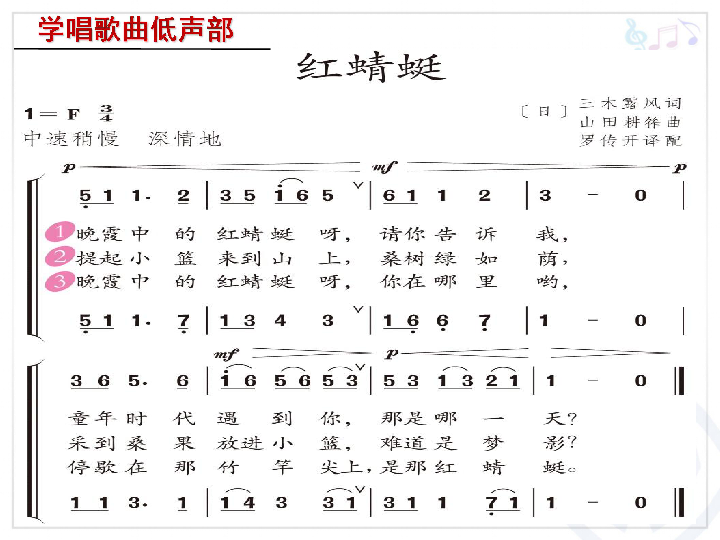 学唱歌曲低声部
红蜻蜓
1= F 3/4
〔日〕三木露风词
山田耕筰曲
中速稍慢 深情地
罗传开译配
p mf p
5 1 1· 2 | 3 5 i 6 5 ∨ | 6 1 1 2 | 3 – 0 |
①晚霞中 的 红蜻蜓 呀, 请你告诉 我,
②提起小 篮 来到山 上, 桑树绿如 荫,
③晚霞中 的 红蜻蜓 呀, 你在哪里 哟,
5 1 1· 7 | 1 3 4 3 ∨ | 1 6 6 7 | 1 – 0 |
mf p
3 6 5· 6 | i 6 5 6 5 3 ∨ | 5 3 1 3 2 1 | 1 – 0 ‖
童年时 代 遇 到 你, 那是哪 一 天?
采到桑 果 放进小 篮, 难道是 梦 影?
停歇在 那 竹 竿 尖上, 是那红 蜻 蜓。
1 1 3· 1 | 1 4 3 3 1 ∨ | 3 1 1 7 1 | 1 – 0 ‖